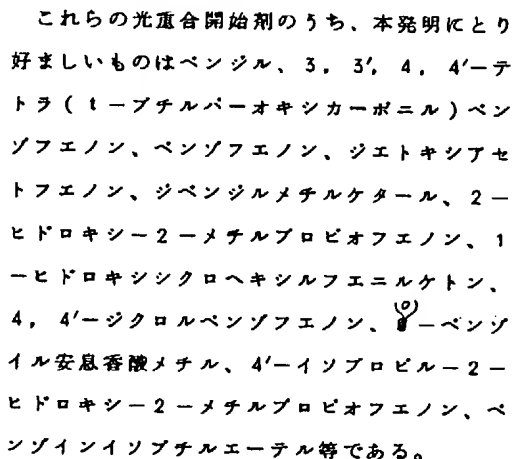 これらの光重合開始剤のうち、本発明にとり
好ましいものはベンジル、3，3′，4，4′ーテ
トラ(tーブチルパーオキシカーボニル)ベン
ゾフエノン、ベンゾフエノン、ジエトキシアセ
トフエノン、ジベンジルメチルケタール、2ー
ヒドロキシー2ーメチルプロピオフエノン、1
ーヒドロキシシクロヘキシルフエニルケトン、
4，4′ージクロルベンゾフエノン、oーベンゾ
イル安息香酸メチル、4′ーイソプロピルー2ー
ヒドロキシー2ーメチルプロピオフエノン、ベ
ンゾインイソブチルエーテル等である。